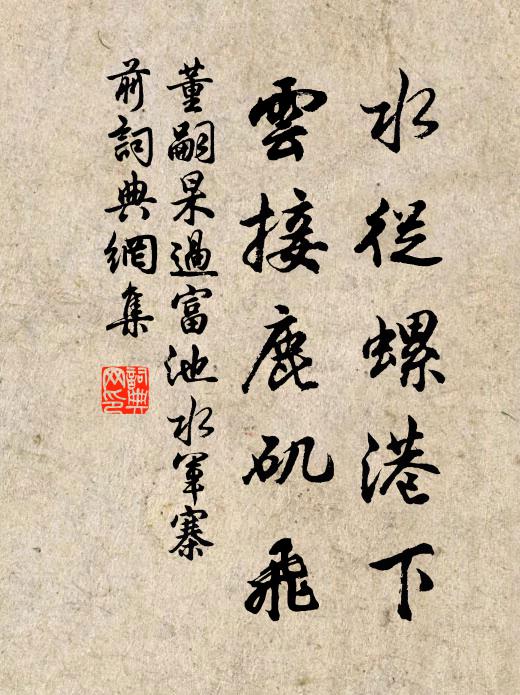 水從螺港下
雲接鹿矶飛
董嗣杲過富池水軍寨
前詞典網集
詞典
网印